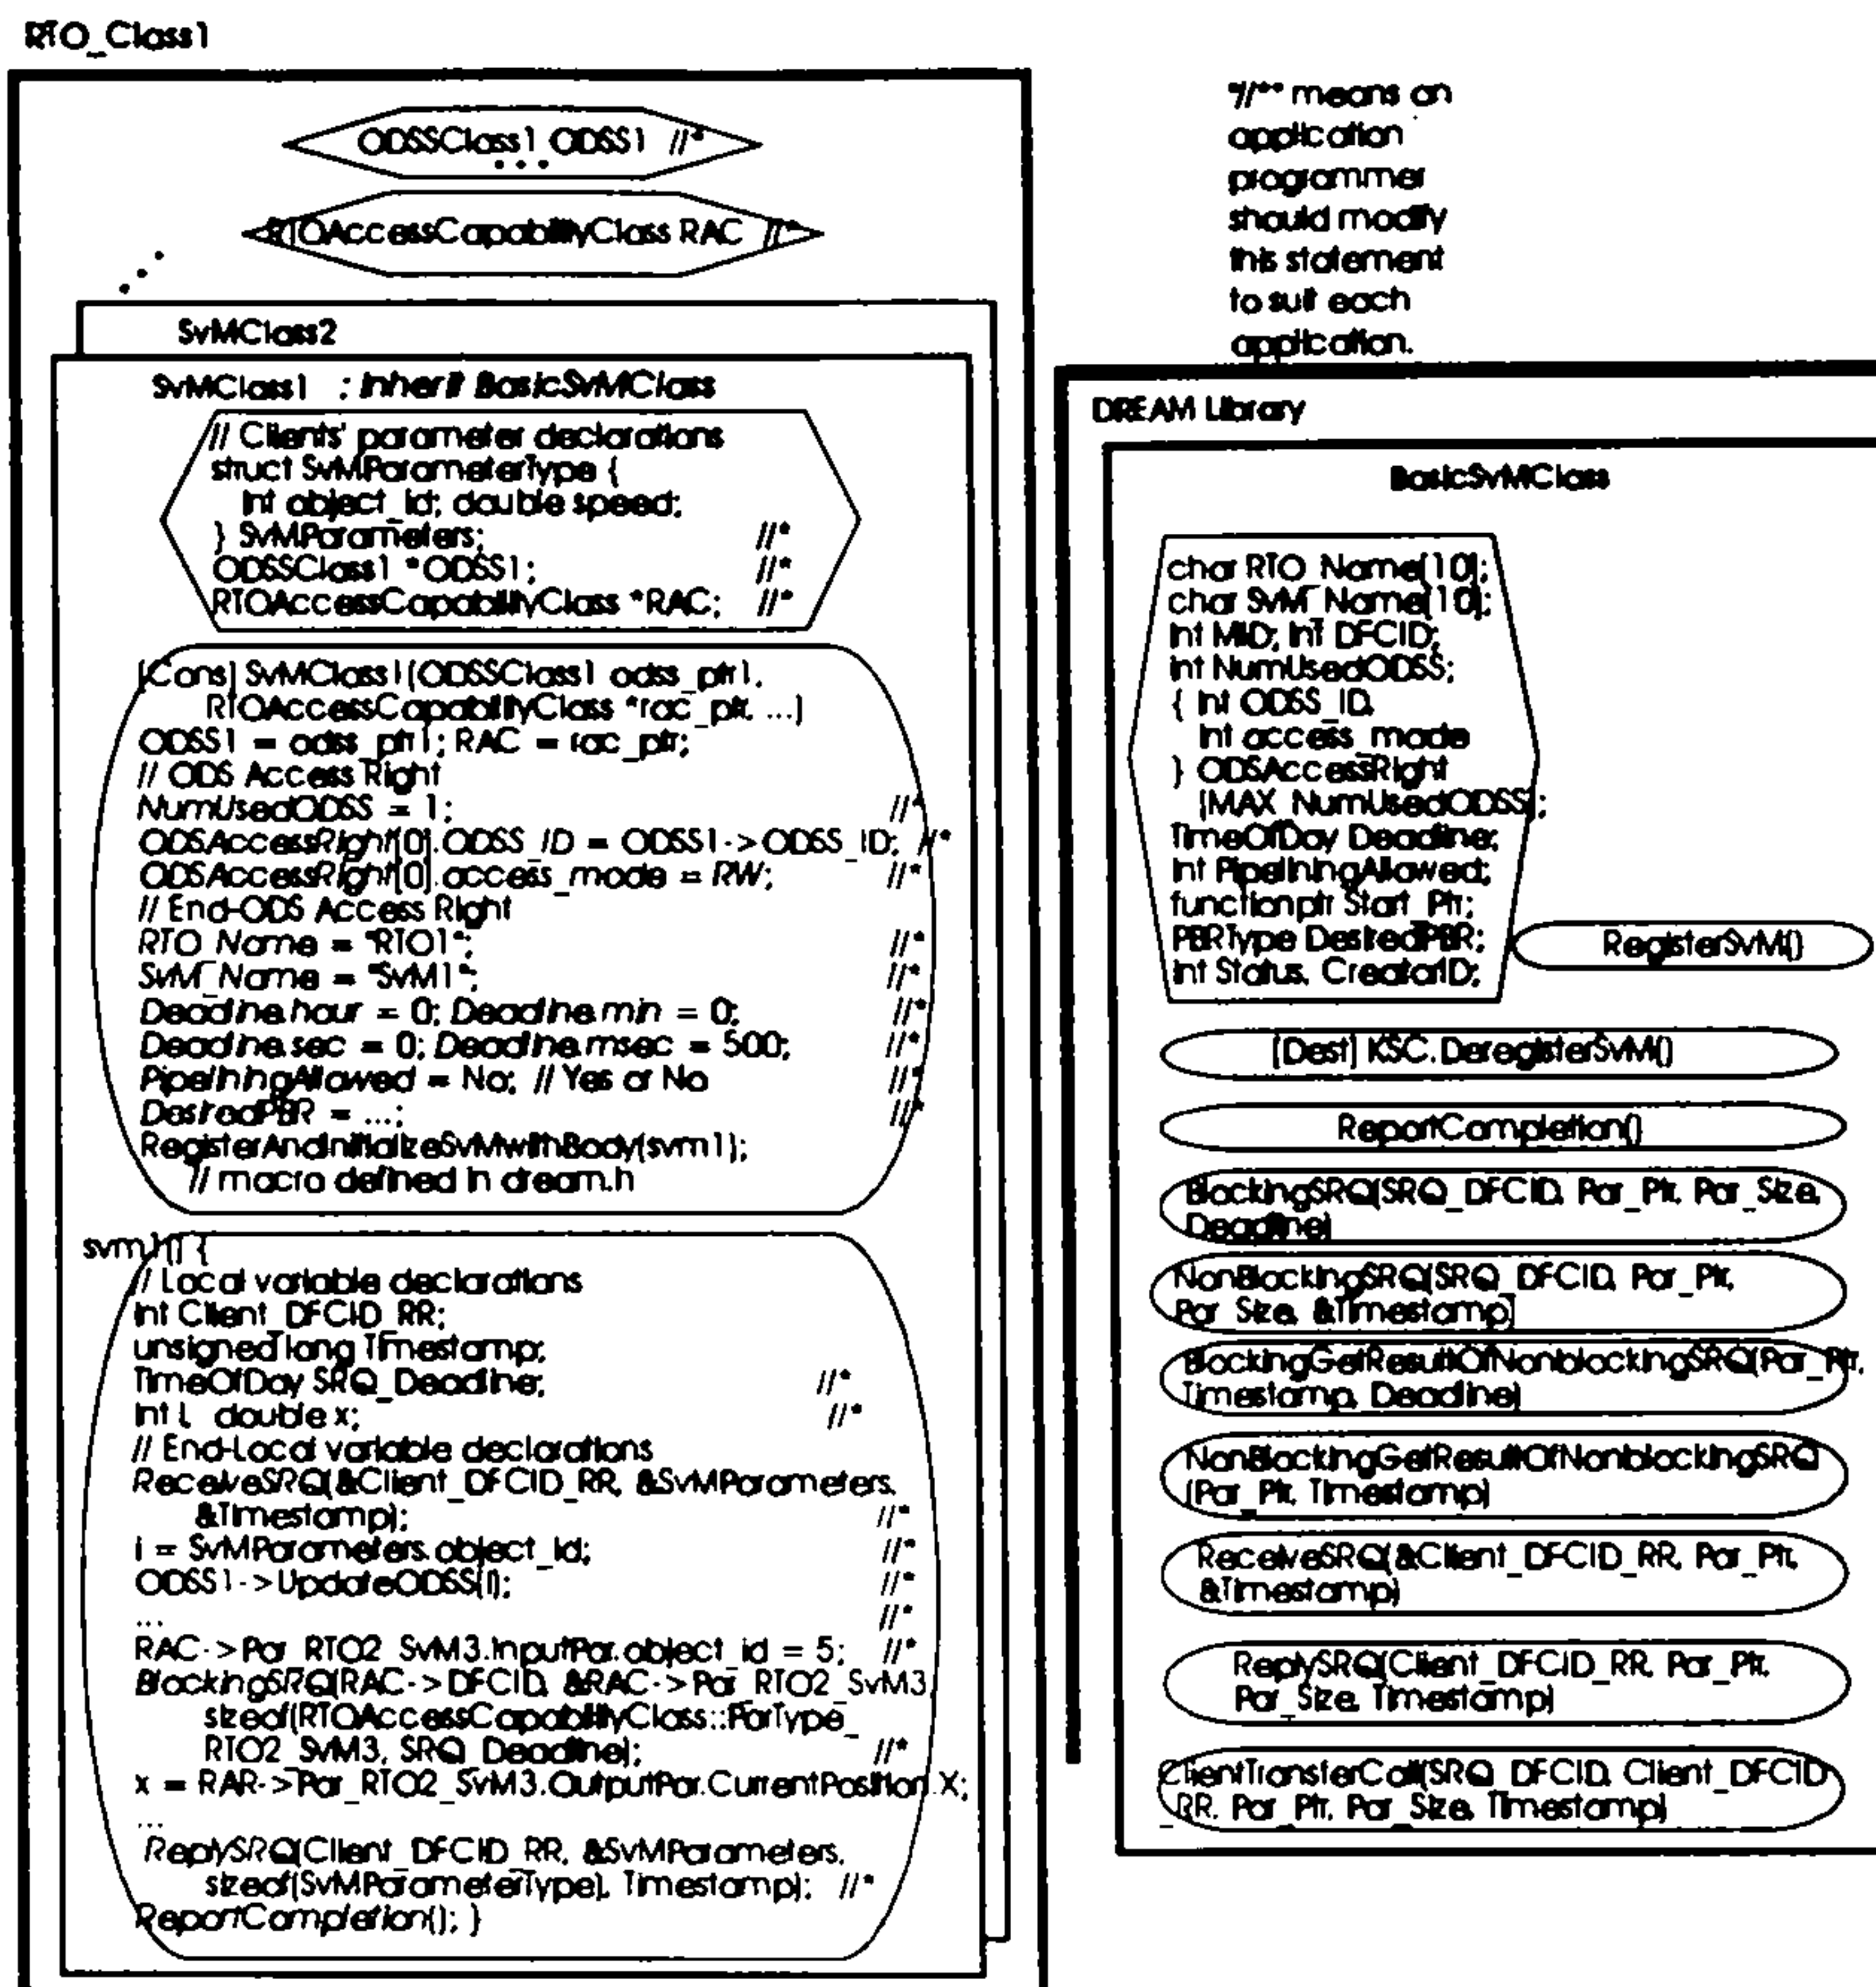 RTO_Class1
ODSSClass1 ODSS1 //*
...
RTOAccessCapabilityClass RAC //*
...
SvMClass2
SvMClass1 : Inherit BasicSvMClass
// Clients' parameter declarations
struct SvMParameterType {
int object_id; double speed;
} SvMParameters; //*
ODSSClass1 *ODSS1; //*
RTOAccessCapabilityClass *RAC; //*
[Cons] SvMClass1(ODSSClass1 odss_ptr1,
RTOAccessCapabilityClass *rac_ptr, ...)
ODSS1 = odss_ptr1; RAC = rac_ptr;
// ODS Access Right
NumUsedODSS = 1; //*
ODSAccessRight[0].ODSS_ID = ODSS1->ODSS_ID; //*
ODSAccessRight[0].access_mode = RW; //*
// End-ODS Access Right
RTO_Name = "RTO1"; //*
SvM_Name = "SvM1"; //*
Deadline.hour = 0; Deadline.min = 0; //*
Deadline.sec = 0; Deadline.msec = 500; //*
PipeliningAllowed = No; // Yes or No //*
DesiredPBR = ...; //*
RegisterAndInitializeSvMwithBody(svm1);
// macro defined in dream.h
svm1() {
// Local variable declarations
int Client_DFCID_RR;
unsigned long Timestamp;
TimeOfDay SRQ_Deadline; //*
int i, double x; //*
// End-Local variable declarations
ReceiveSRQ(&Client_DFCID_RR, &SvMParameters,
&Timestamp); //*
i = SvMParameters.object_id; //*
ODSS1->UpdateODSS(i); //*
... //*
RAC->Par_RTO2_SvM3.InputPar.object_id = 5; //*
BlockingSRQ(RAC->DFCID, &RAC->Par_RTO2_SvM3
sizeof(RTOAccessCapabilityClass::ParType_
RTO2_SvM3, SRQ_Deadline); //*
x = RAR->Par_RTO2_SvM3.OutputPar.CurrentPosition.X;
...
ReplySRQ(Client_DFCID_RR, &SvMParameters,
sizeof(SvMParameterType), Timestamp); //*
ReportCompletion(); }
"//*" means an
application
programmer
should modify
this statement
to suit each
application.
DREAM Library
BasicSvMClass
char RTO_Name[10];
char SvM_Name[10];
int MID; int DFCID;
int NumUsedODSS;
{ int ODSS_ID,
int access_mode
} ODSAccessRight
[MAX_NumUsedODSS];
TimeOfDay Deadline;
int PipeliningAllowed;
functionptr Start_Ptr;
PBRType DesiredPBR;
int Status, CreatorID;
RegisterSvM()
[Dest] KSC.DeregisterSvM()
ReportCompletion()
BlockingSRQ(SRQ_DFCID, Par_Ptr, Par_Size,
Deadline)
NonBlockingSRQ(SRQ_DFCID, Par_Ptr,
Par_Size, &Timestamp)
BlockingGetResultOfNonblockingSRQ(Par_Ptr,
Timestamp, Deadline)
NonBlockingGetResultOfNonblockingSRQ
(Par_Ptr, Timestamp)
ReceiveSRQ(&Client_DFCID_RR, Par_Ptr,
&Timestamp)
ReplySRQ(Client_DFCID_RR, Par_Ptr,
Par_Size, Timestamp)
ClientTransferCall(SRQ_DFCID, Client_DFCID
_RR, Par_Ptr, Par_Size, Timestamp)